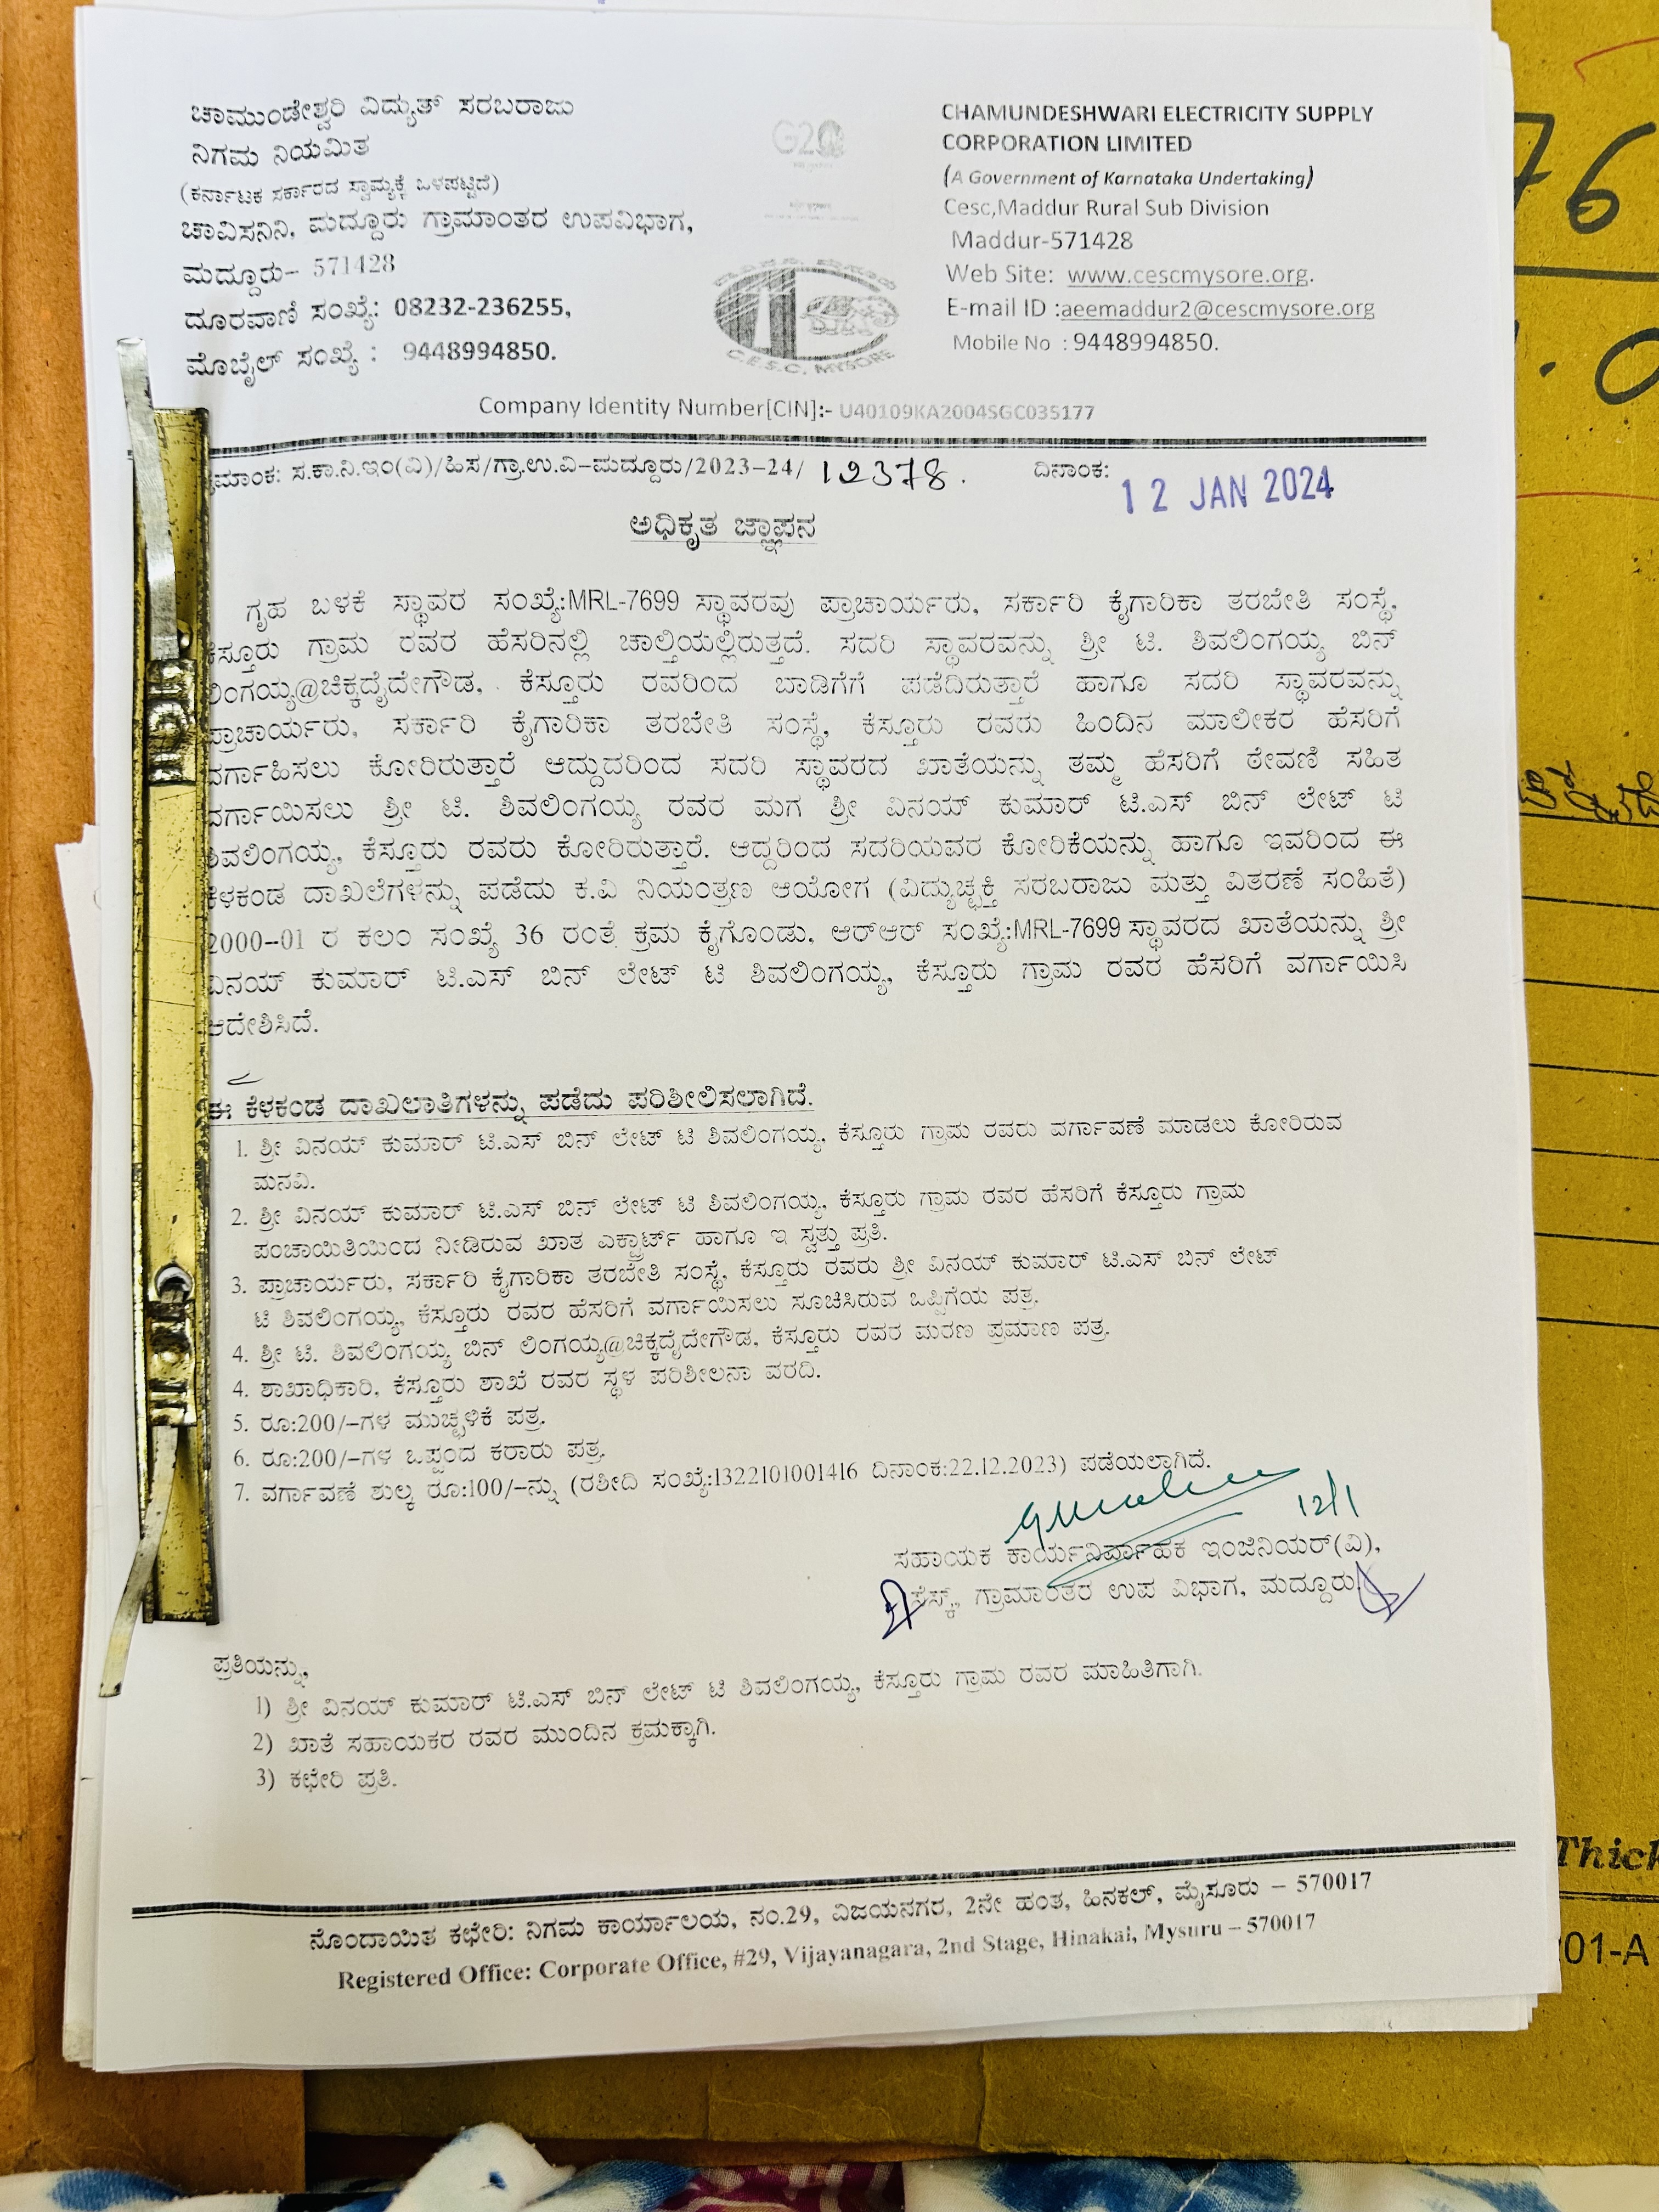 ಚಾಮುಂಡೇಶ್ವರಿ ವಿದ್ಯುತ್ ಸರಬರಾಜು
ನಿಗಮ ನಿಯಮಿತ
(ಕರ್ನಾಟಕ ಸರ್ಕಾರದ ಸ್ವಾಮ್ಯಕ್ಕೆ ಒಳಪಟ್ಟಿದೆ)
ಚಾವಿಸನಿನಿ, ಮದ್ದೂರು ಗ್ರಾಮಾಂತರ ಉಪವಿಭಾಗ,
ಮದ್ದೂರು– 571428
ದೂರವಾಣಿ ಸಂಖ್ಯೆ: 08232-236255,
ಮೊಬೈಲ್ ಸಂಖ್ಯೆ : 9448994850.
G20
C.E.S.C. MYSORE
CHAMUNDESHWARI ELECTRICITY SUPPLY
CORPORATION LIMITED
(A Government of Karnataka Undertaking)
Cesc,Maddur Rural Sub Division
Maddur-571428
Web Site: www.cescmysore.org.
E-mail ID :aeemaddur2@cescmysore.org
Mobile No : 9448994850.
Company Identity Number[CIN]:- U40109KA2004SGC035177
ಕ್ರಮಾಂಕ: ಸ.ಕಾ.ನಿ.ಇಂ(ವಿ)/ಹಿಸ/ಗ್ರಾ.ಉ.ವಿ–ಮದ್ದೂರು/2023–24/ 12378. ದಿನಾಂಕ: 12 JAN 2024
ಅಧಿಕೃತ ಜ್ಞಾಪನ
ಗೃಹ ಬಳಕೆ ಸ್ಥಾವರ ಸಂಖ್ಯೆ:MRL-7699 ಸ್ಥಾವರವು ಪ್ರಾಚಾರ್ಯರು, ಸರ್ಕಾರಿ ಕೈಗಾರಿಕಾ ತರಬೇತಿ ಸಂಸ್ಥೆ,
ಕೆಸ್ತೂರು ಗ್ರಾಮ ರವರ ಹೆಸರಿನಲ್ಲಿ ಚಾಲ್ತಿಯಲ್ಲಿರುತ್ತದೆ. ಸದರಿ ಸ್ಥಾವರವನ್ನು ಶ್ರೀ ಟಿ. ಶಿವಲಿಂಗಯ್ಯ ಬಿನ್
ಲಿಂಗಯ್ಯ@ಚಿಕ್ಕದೈದೇಗೌಡ, ಕೆಸ್ತೂರು ರವರಿಂದ ಬಾಡಿಗೆಗೆ ಪಡೆದಿರುತ್ತಾರೆ ಹಾಗೂ ಸದರಿ ಸ್ಥಾವರವನ್ನು
ಪ್ರಾಚಾರ್ಯರು, ಸರ್ಕಾರಿ ಕೈಗಾರಿಕಾ ತರಬೇತಿ ಸಂಸ್ಥೆ, ಕೆಸ್ತೂರು ರವರು ಹಿಂದಿನ ಮಾಲೀಕರ ಹೆಸರಿಗೆ
ವರ್ಗಾಹಿಸಲು ಕೋರಿರುತ್ತಾರೆ ಆದ್ದುದರಿಂದ ಸದರಿ ಸ್ಥಾವರದ ಖಾತೆಯನ್ನು ತಮ್ಮ ಹೆಸರಿಗೆ ಠೇವಣಿ ಸಹಿತ
ವರ್ಗಾಯಿಸಲು ಶ್ರೀ ಟಿ. ಶಿವಲಿಂಗಯ್ಯ ರವರ ಮಗ ಶ್ರೀ ವಿನಯ್ ಕುಮಾರ್ ಟಿ.ಎಸ್ ಬಿನ್ ಲೇಟ್ ಟಿ
ಶಿವಲಿಂಗಯ್ಯ, ಕೆಸ್ತೂರು ರವರು ಕೋರಿರುತ್ತಾರೆ. ಆದ್ದರಿಂದ ಸದರಿಯವರ ಕೋರಿಕೆಯನ್ನು ಹಾಗೂ ಇವರಿಂದ ಈ
ಕೆಳಕಂಡ ದಾಖಲೆಗಳನ್ನು ಪಡೆದು ಕ.ವಿ ನಿಯಂತ್ರಣ ಆಯೋಗ (ವಿದ್ಯುಚ್ಛಕ್ತಿ ಸರಬರಾಜು ಮತ್ತು ವಿತರಣೆ ಸಂಹಿತೆ)
2000–01 ರ ಕಲಂ ಸಂಖ್ಯೆ 36 ರಂತೆ ಕ್ರಮ ಕೈಗೊಂಡು, ಆರ್‌ಆರ್ ಸಂಖ್ಯೆ:MRL-7699 ಸ್ಥಾವರದ ಖಾತೆಯನ್ನು ಶ್ರೀ
ವಿನಯ್ ಕುಮಾರ್ ಟಿ.ಎಸ್ ಬಿನ್ ಲೇಟ್ ಟಿ ಶಿವಲಿಂಗಯ್ಯ, ಕೆಸ್ತೂರು ಗ್ರಾಮ ರವರ ಹೆಸರಿಗೆ ವರ್ಗಾಯಿಸಿ
ಆದೇಶಿಸಿದೆ.
ಈ ಕೆಳಕಂಡ ದಾಖಲಾತಿಗಳನ್ನು ಪಡೆದು ಪರಿಶೀಲಿಸಲಾಗಿದೆ.
1. ಶ್ರೀ ವಿನಯ್ ಕುಮಾರ್ ಟಿ.ಎಸ್ ಬಿನ್ ಲೇಟ್ ಟಿ ಶಿವಲಿಂಗಯ್ಯ, ಕೆಸ್ತೂರು ಗ್ರಾಮ ರವರು ವರ್ಗಾವಣೆ ಮಾಡಲು ಕೋರಿರುವ
ಮನವಿ.
2. ಶ್ರೀ ವಿನಯ್ ಕುಮಾರ್ ಟಿ.ಎಸ್ ಬಿನ್ ಲೇಟ್ ಟಿ ಶಿವಲಿಂಗಯ್ಯ, ಕೆಸ್ತೂರು ಗ್ರಾಮ ರವರ ಹೆಸರಿಗೆ ಕೆಸ್ತೂರು ಗ್ರಾಮ
ಪಂಚಾಯಿತಿಯಿಂದ ನೀಡಿರುವ ಖಾತ ಎಕ್ಟ್ರಾರ್ಟ್ ಹಾಗೂ ಇ ಸ್ವತ್ತು ಪ್ರತಿ.
3. ಪ್ರಾಚಾರ್ಯರು, ಸರ್ಕಾರಿ ಕೈಗಾರಿಕಾ ತರಬೇತಿ ಸಂಸ್ಥೆ, ಕೆಸ್ತೂರು ರವರು ಶ್ರೀ ವಿನಯ್ ಕುಮಾರ್ ಟಿ.ಎಸ್ ಬಿನ್ ಲೇಟ್
ಟಿ ಶಿವಲಿಂಗಯ್ಯ, ಕೆಸ್ತೂರು ರವರ ಹೆಸರಿಗೆ ವರ್ಗಾಯಿಸಲು ಸೂಚಿಸಿರುವ ಒಪ್ಪಿಗೆಯ ಪತ್ರ.
4. ಶ್ರೀ ಟಿ. ಶಿವಲಿಂಗಯ್ಯ ಬಿನ್ ಲಿಂಗಯ್ಯ@ಚಿಕ್ಕದೈದೇಗೌಡ, ಕೆಸ್ತೂರು ರವರ ಮರಣ ಪ್ರಮಾಣ ಪತ್ರ.
4. ಶಾಖಾಧಿಕಾರಿ, ಕೆಸ್ತೂರು ಶಾಖೆ ರವರ ಸ್ಥಳ ಪರಿಶೀಲನಾ ವರದಿ.
5. ರೂ:200/–ಗಳ ಮುಚ್ಛಳಿಕೆ ಪತ್ರ.
6. ರೂ:200/–ಗಳ ಒಪ್ಪಂದ ಕರಾರು ಪತ್ರ.
7. ವರ್ಗಾವಣೆ ಶುಲ್ಕ ರೂ:100/–ನ್ನು (ರಶೀದಿ ಸಂಖ್ಯೆ:1322101001416 ದಿನಾಂಕ:22.12.2023) ಪಡೆಯಲಾಗಿದೆ.
12/1
ಸಹಾಯಕ ಕಾರ್ಯನಿರ್ವಾಹಕ ಇಂಜಿನಿಯರ್(ವಿ),
ಸೆಸ್ಕ್, ಗ್ರಾಮಾಂತರ ಉಪ ವಿಭಾಗ, ಮದ್ದೂರು.
ಪ್ರತಿಯನ್ನು,
1) ಶ್ರೀ ವಿನಯ್ ಕುಮಾರ್ ಟಿ.ಎಸ್ ಬಿನ್ ಲೇಟ್ ಟಿ ಶಿವಲಿಂಗಯ್ಯ, ಕೆಸ್ತೂರು ಗ್ರಾಮ ರವರ ಮಾಹಿತಿಗಾಗಿ.
2) ಖಾತೆ ಸಹಾಯಕರ ರವರ ಮುಂದಿನ ಕ್ರಮಕ್ಕಾಗಿ.
3) ಕಛೇರಿ ಪ್ರತಿ.
ನೊಂದಾಯಿತ ಕಛೇರಿ: ನಿಗಮ ಕಾರ್ಯಾಲಯ, ನಂ.29, ವಿಜಯನಗರ, 2ನೇ ಹಂತ, ಹಿನಕಲ್, ಮೈಸೂರು – 570017
Registered Office: Corporate Office, #29, Vijayanagara, 2nd Stage, Hinakal, Mysuru – 570017
76
.0
Thick
01-A